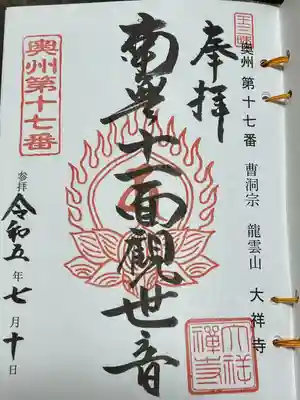 王三郎
奥州 第十七番 曹洞宗 龍雲山 大祥寺
奉拝
南無十一面観世音
奥州第十七番
参拝 令和五年七月十日
大祥禅寺